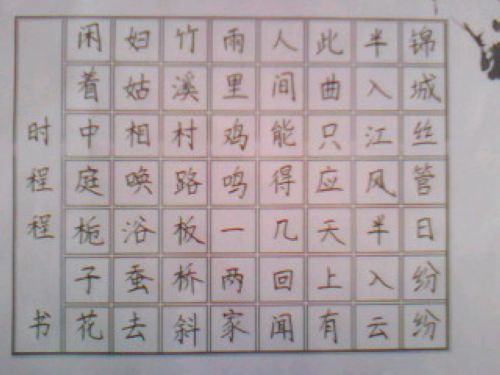 锦城丝管日纷纷
半入江风半入云
此曲只应天上有
人间能得几回闻
雨里鸡鸣一两家
竹溪村路板桥斜
妇姑相唤浴蚕去
闲着中庭栀子花
时程程 书